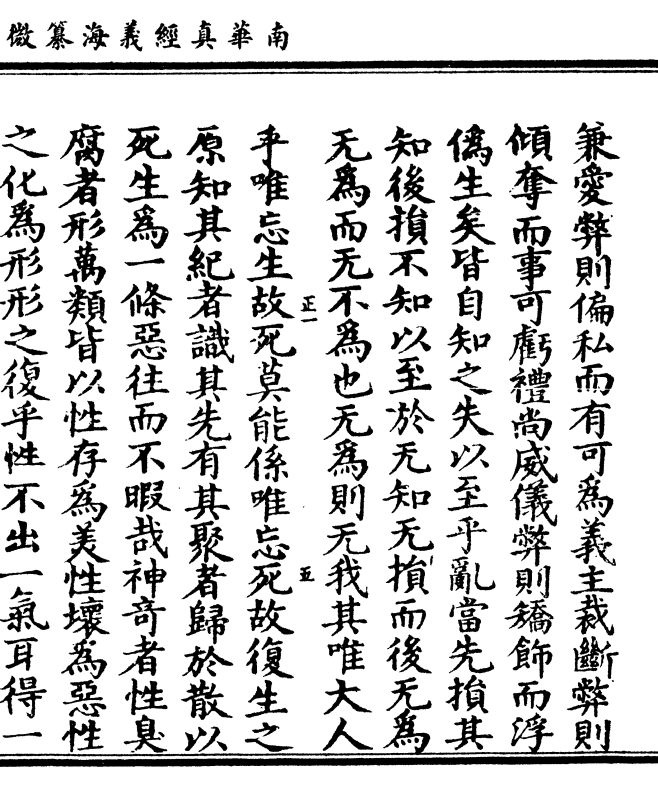 南華真經義海纂微
兼愛弊則偏私而有可為義主裁斷弊則
傾奪而事可虧禮尚威儀弊則矯飾而浮
偽生矣皆自知之失以至乎亂當先損其
知後損不知以至於无知无損而後无為
无為而无不為也无為則无我其唯大人
乎唯忘生故死莫能係唯忘死故復生之
正一
五
原知其紀者識其先有其聚者歸於散以
死生為一條惡往而不暇哉神奇者性臭
腐者形萬類皆以性存為美性壞為惡性
之化為形形之復乎性不出一氣耳得一